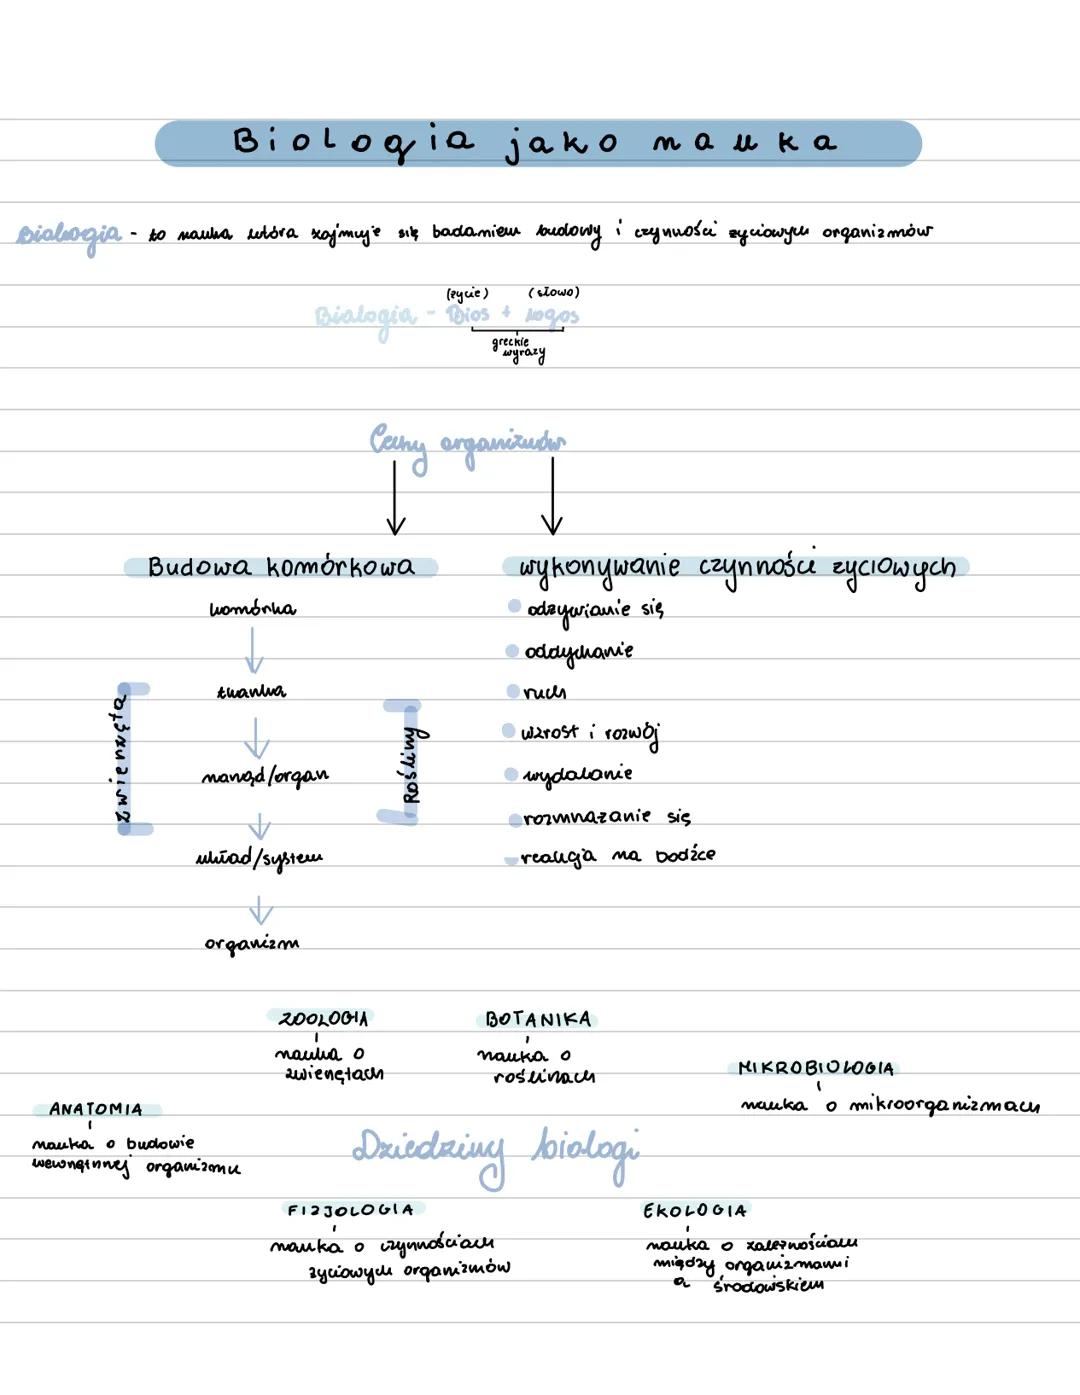 Biologia jako nauka
Biologia - to nauka która zajmuje się badaniem budowy i czynności życiowych organizmów
(życie) (słowo)
Biologia - Bios + logos
greckie
wyrazy
Cechy organizmów
Budowa komórkowa
komórka
tkanka
narząd/organ
układ/system
organizm
zwierzęta
Rośliny
wykonywanie czynności życiowych
odżywianie się
oddychanie
ruch
wzrost i rozwój
wydalanie
rozmnażanie się
reakcja na bodźce
ZOOLOGIA
nauka o
zwierzętach
BOTANIKA
nauka o
roślinach
MIKROBIOLOGIA
nauka o mikroorganizmach
ANATOMIA
nauka o budowie
wewnętrznej organizmu
Dziedziny biologi
FIZJOLOGIA
nauka o czynnościach
życiowych organizmów
EKOLOGIA
nauka o zależnościach
między organizmami
a środowiskiem